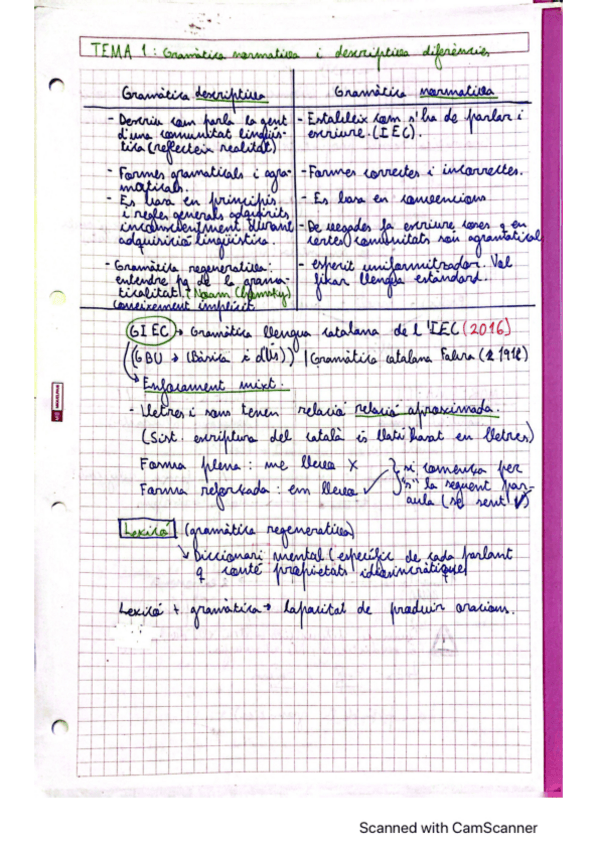 TEMA 1: Gramàtica normativa i descriptiva diferències
Gramàtica descriptiva
- Descriu com parla la gent
d'una comunitat lingüís-
tica (reflecteix realitat)
- Formes gramaticals i agra-
maticals.
- Es basa en principis
i regles generals adquirits
inconscientment durant
adquisició lingüística.
- Gramàtica regenerativa:
entendre pq de la grama-
ticalitat. (Noam Chomsky)
coneixement implícit
Gramàtica normativa
- Estableix com s'ha de parlar i
escriure. (IEC).
- Formes correctes i incorrectes.
- Es basa en convencions
- De vegades fa escriure coses q en
certes comunitats són agramatical
- esperit uniformitzador. Vol
fixar llengua estàndard.
GIEC → Gramàtica llengua catalana de l'IEC (2016)
(GBU → (Bàsica i d'ús)) | Gramàtica catalana Fabra (1918)
Enfocament mixt.
- Lletres i sons tenen relació relació aproximada.
(Sist. escriptura del català és llatí basat en lletres)
Forma plena: me lleva X
Forma reforçada: em lleva ✓
si comença per
"s" la seguent par-
aula (se sent ✓)
Lexicó (gramàtica regenerativa)
↳ Diccionari mental (específic de cada parlant
q conté propietats idiosincràtiques)
Lexicó + gramàtica → capacitat de produir oracions.
Scanned with CamScanner